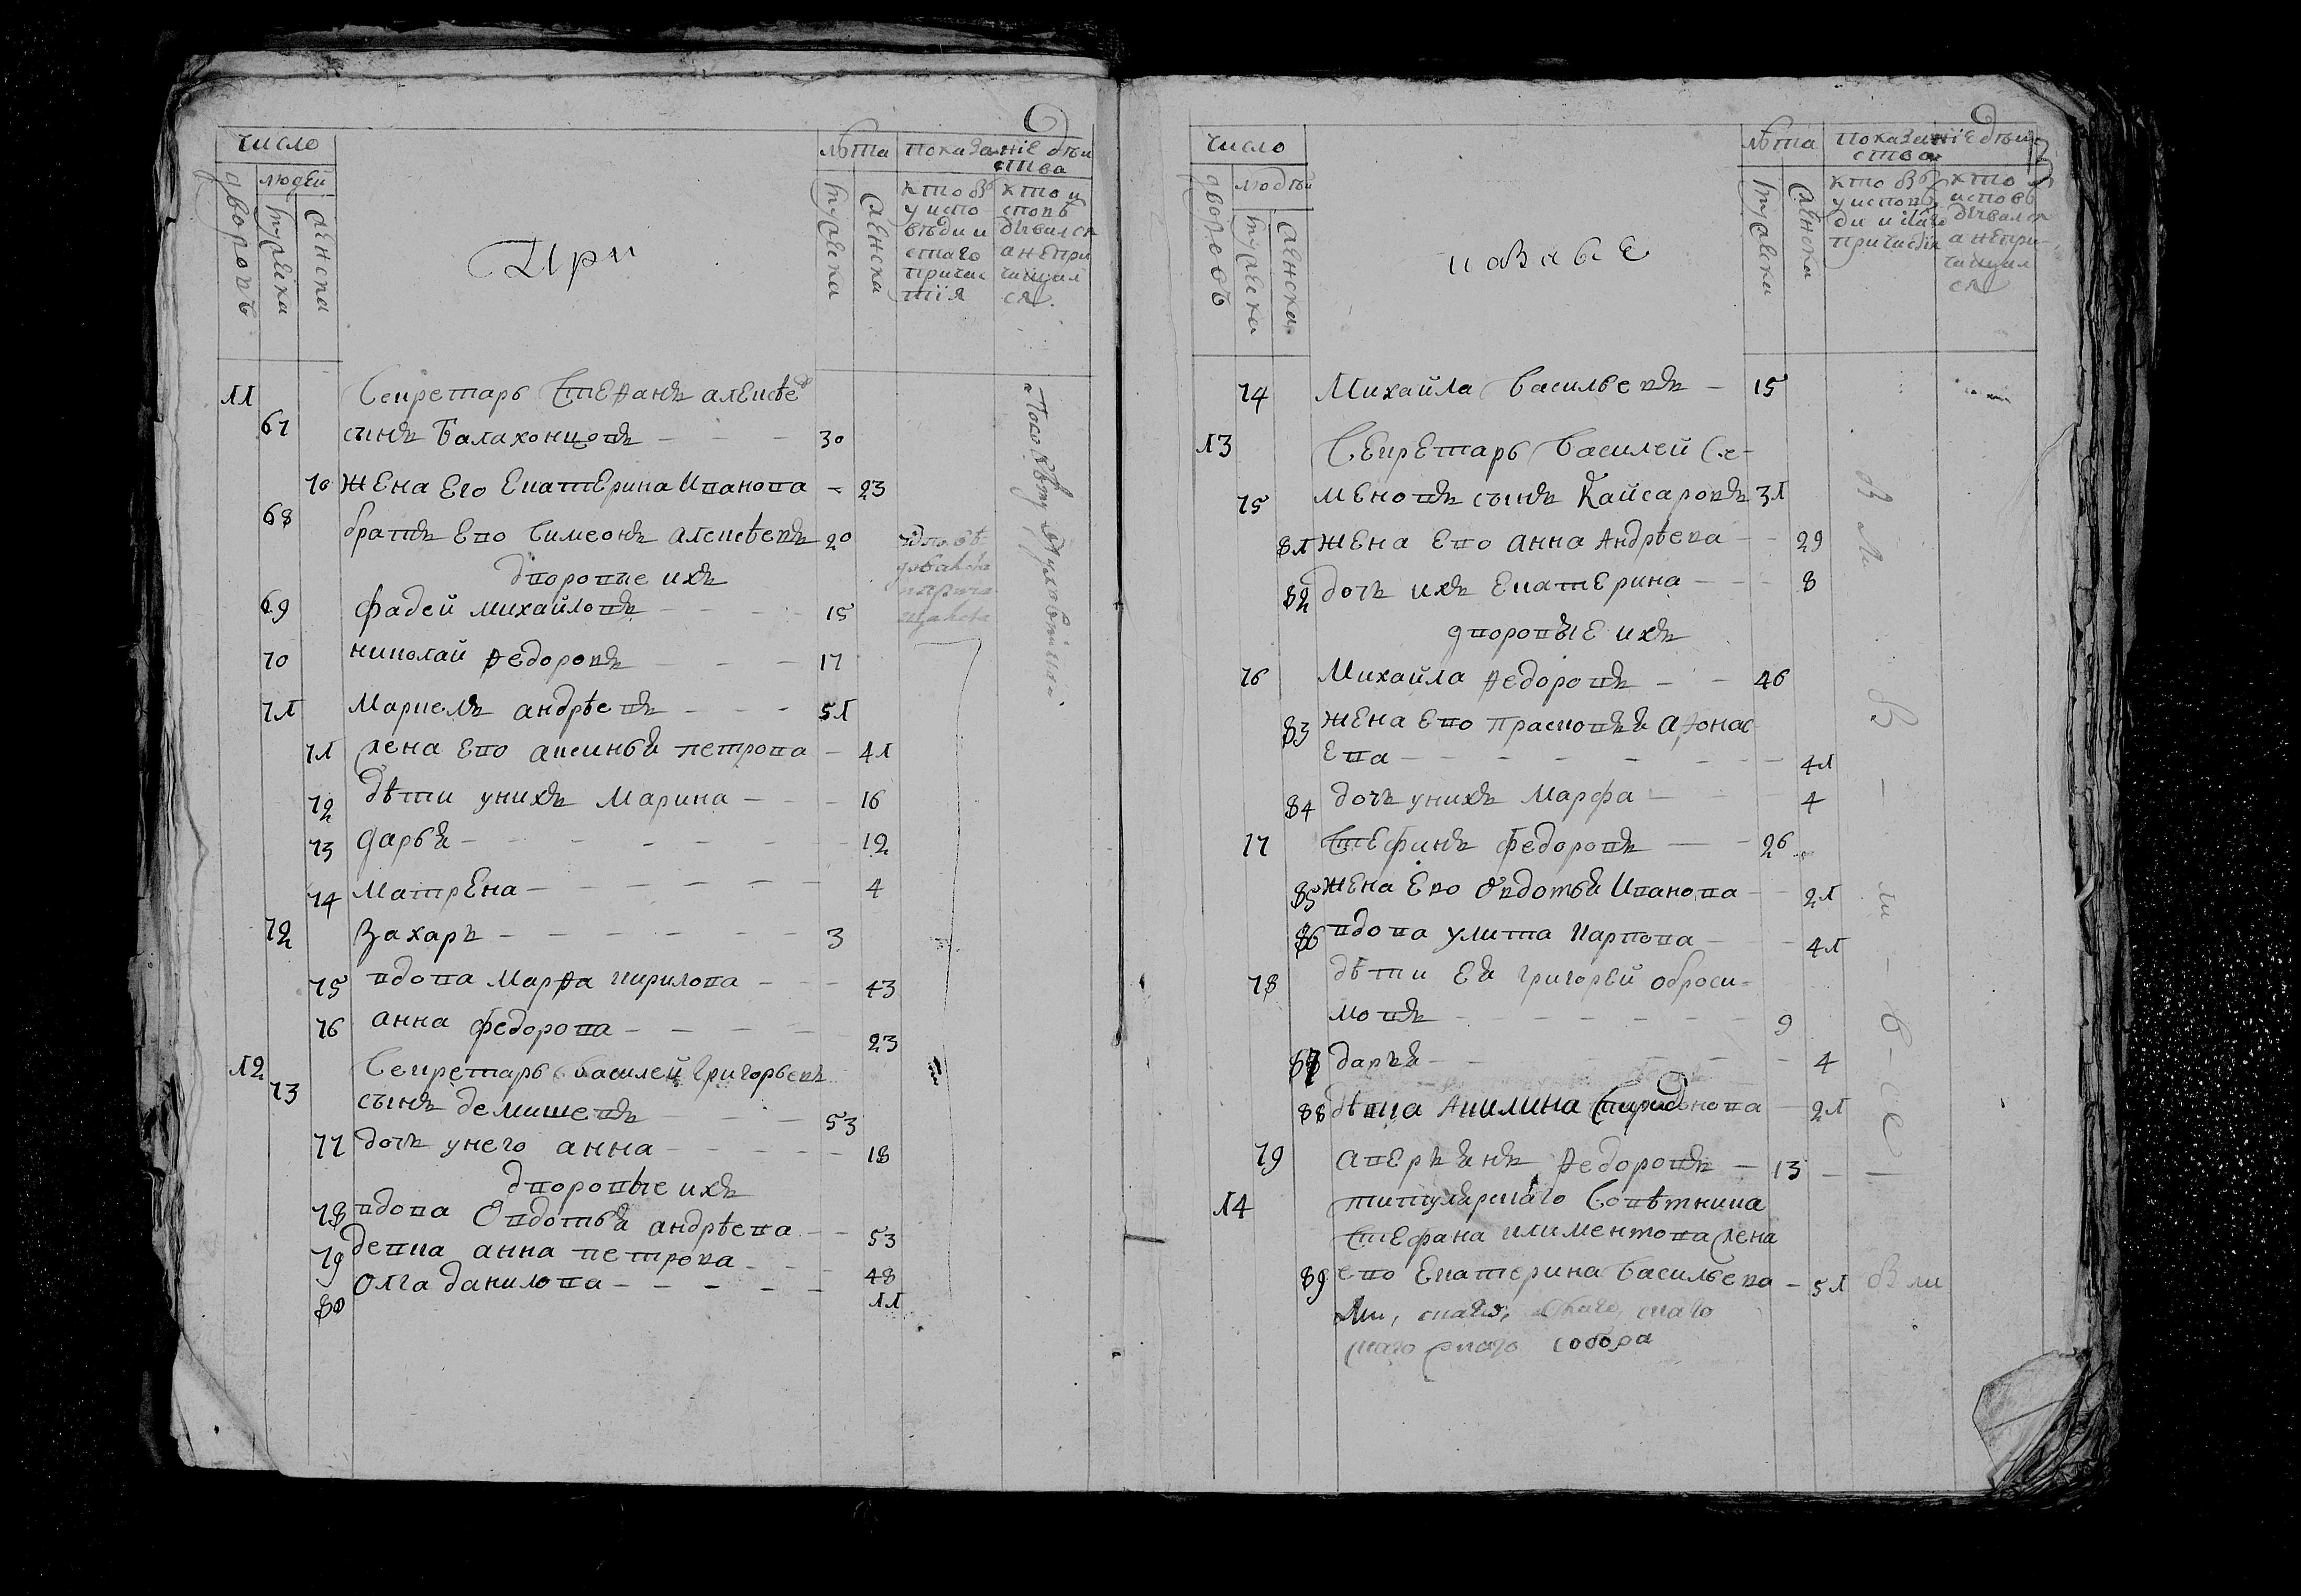 число
людей
дворовъ
мужеска
женска
При
лѣта
мужеска
женска
показаніе дѣи
ства
кто бы
у испо
вѣди и
стаго
причас
тїя
кто и
сповѣ
дывался
а непри
чащал
ся.
11
Секретарь Стефанъ алексѣев
67 сынъ Балахонцовъ 30
70 жена его Екатерина Иванова 23
68 братъ Его Симеонъ алексѣевъ 20
дворовые ихъ
69 фадей михайловъ 15
70 николай федоровъ 17
71 Маркелъ андрѣевъ 51
71 жена Его аксинья петрова 41
72 дѣти унихъ Марина 16
73 дарья 12
74 Матрена 4
72 Захаръ 3
75 вдова Марфа кирилова 43
76 анна федорова 23
12 Секретарь Василей Григорьевъ
73 сынъ демишевъ 53
77 дочь унего анна 18
дворовые ихъ
78 вдова Овдотья андрѣева 53
79 девка анна петрова 48
80 Олга данилова 11
число
людѣи
дворовъ
мужеска
женска
лѣта
мужеска
женска
показаніе дѣи
ства
кто бы
у исповѣ
ди и стаго
кто
исповѣ
дывался
а непри
чащал
ся
74 Михайла Васильевъ 15
13 Секретарь Василей Се-
75 меновъ сынъ Кайсаровъ 31
81 жена Его анна Андрѣева 29
82 дочь ихъ Екатерина 8
дворовые ихъ
76 Михайла федоровъ 46
83 жена Его Прасковья афонас
Ева 41
84 дочь унихъ Марфа 4
77 Стефинъ федоровъ 26
85 жена Его Овдотья Иванова 21
86 вдова улита карпова 41
78 дѣти Ея григорей оброси-
мовъ 9
87 дарья 4
88 дѣвка Акилина Спиридонова 21
79 аверьянъ федоровъ 13
14 титулярнаго Совѣтника
Стефана клементова жена
89 его Екатерина Васильева 51
собора